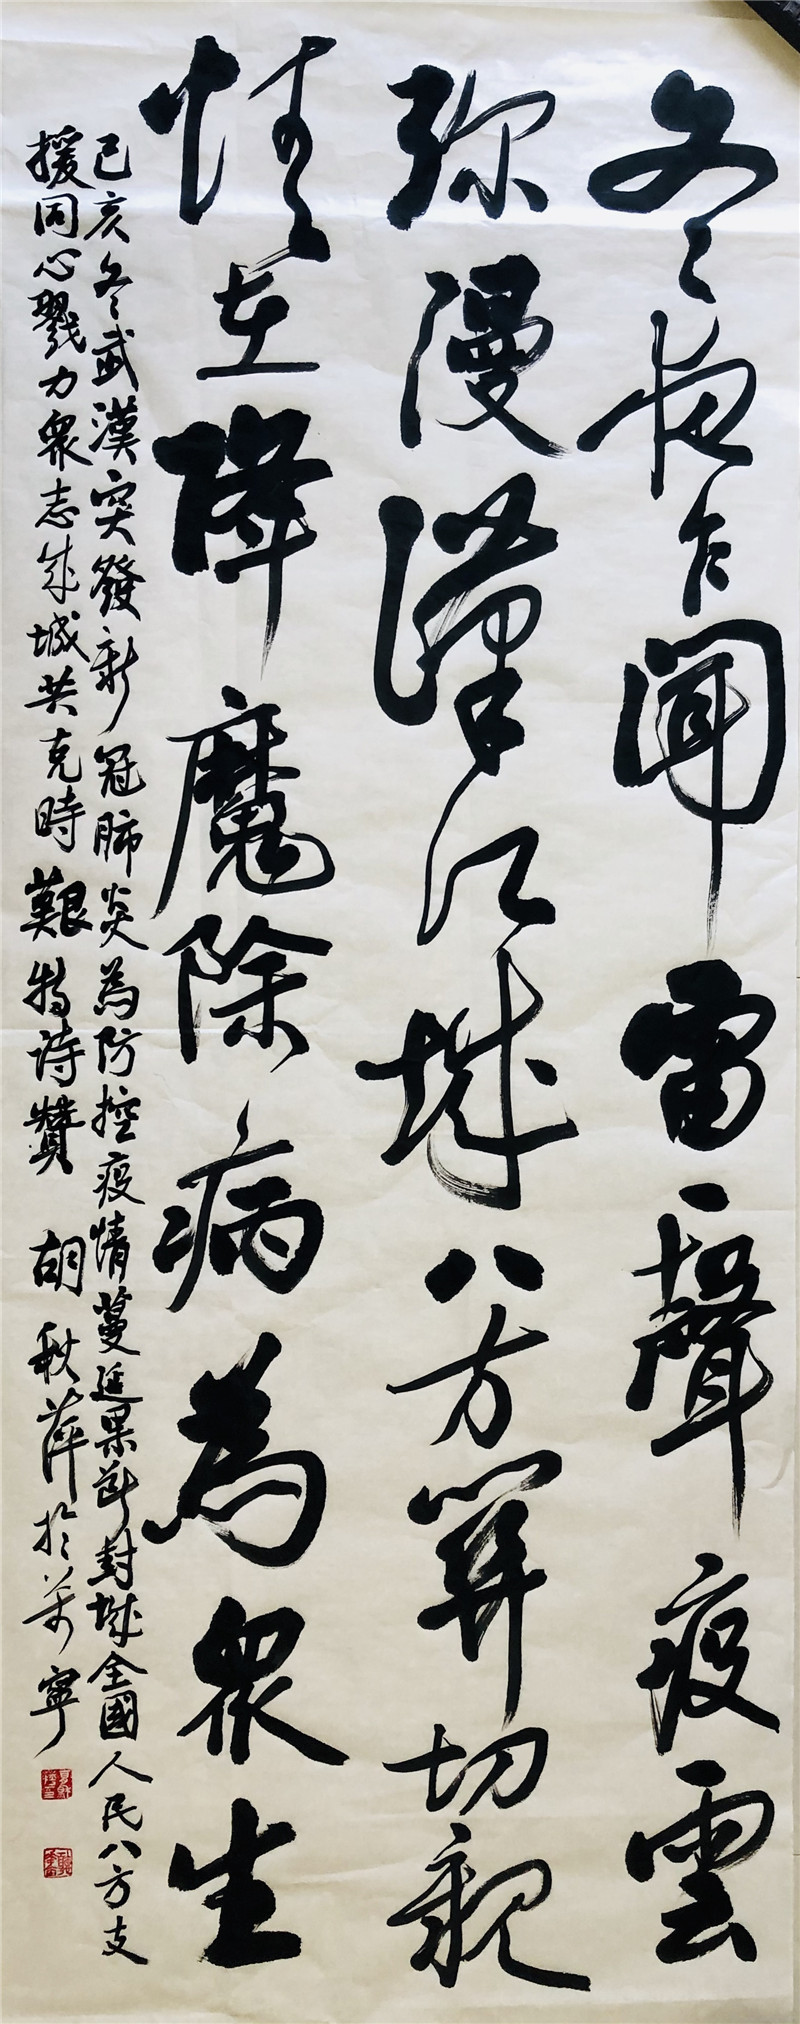 冬夜乍聞雷聲疫雲
弥漫漢江城八方箕切親
情在降魔除病為眾生
己亥冬武漢突發新冠肺炎為防控疫情蔓延果断封城全國人民八方支
援同心戮力眾志成城共克時艱特诗贊 胡秋萍於萬寧